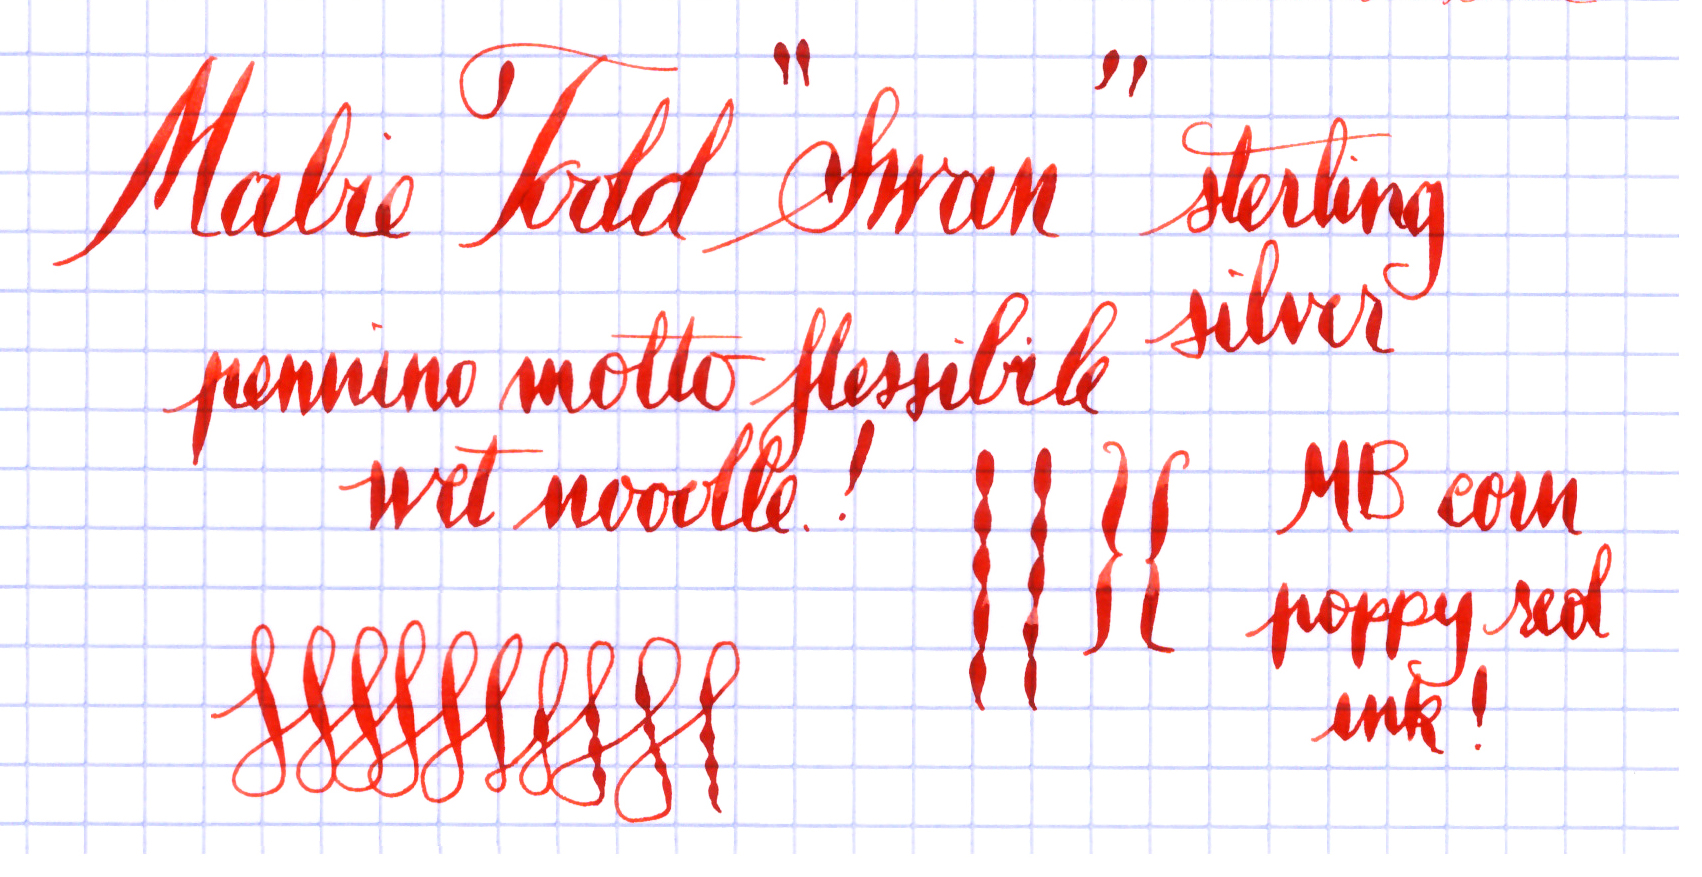 Mabie Todd "Swan" sterling
silver
pennino molto flessibile
wet noodle..!
MB corn
poppy red
ink!